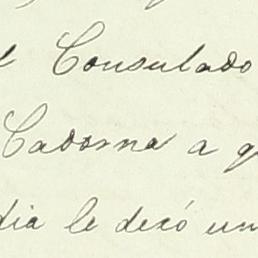 l Consulado
Cadorna a q
dia le dejó un